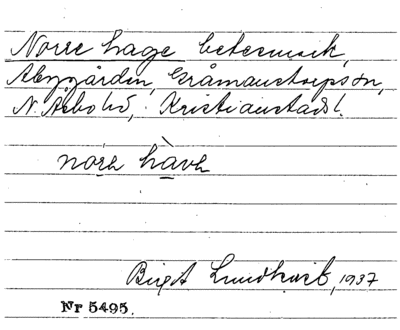 Norre hage betesmark,
Åbygården, Gråmanstorps sn,
N. Åsbo hd, Kristianstads l.
nórə hàvə
Birgit Lundkvist, 1937
Nr 5495.